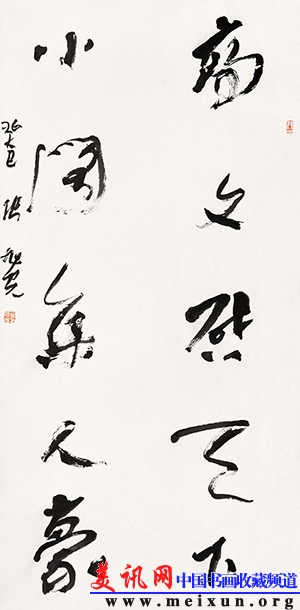 高文启天下
小阁集人豪
张旭光
美讯网 中国书画收藏频道
www.meixun.org